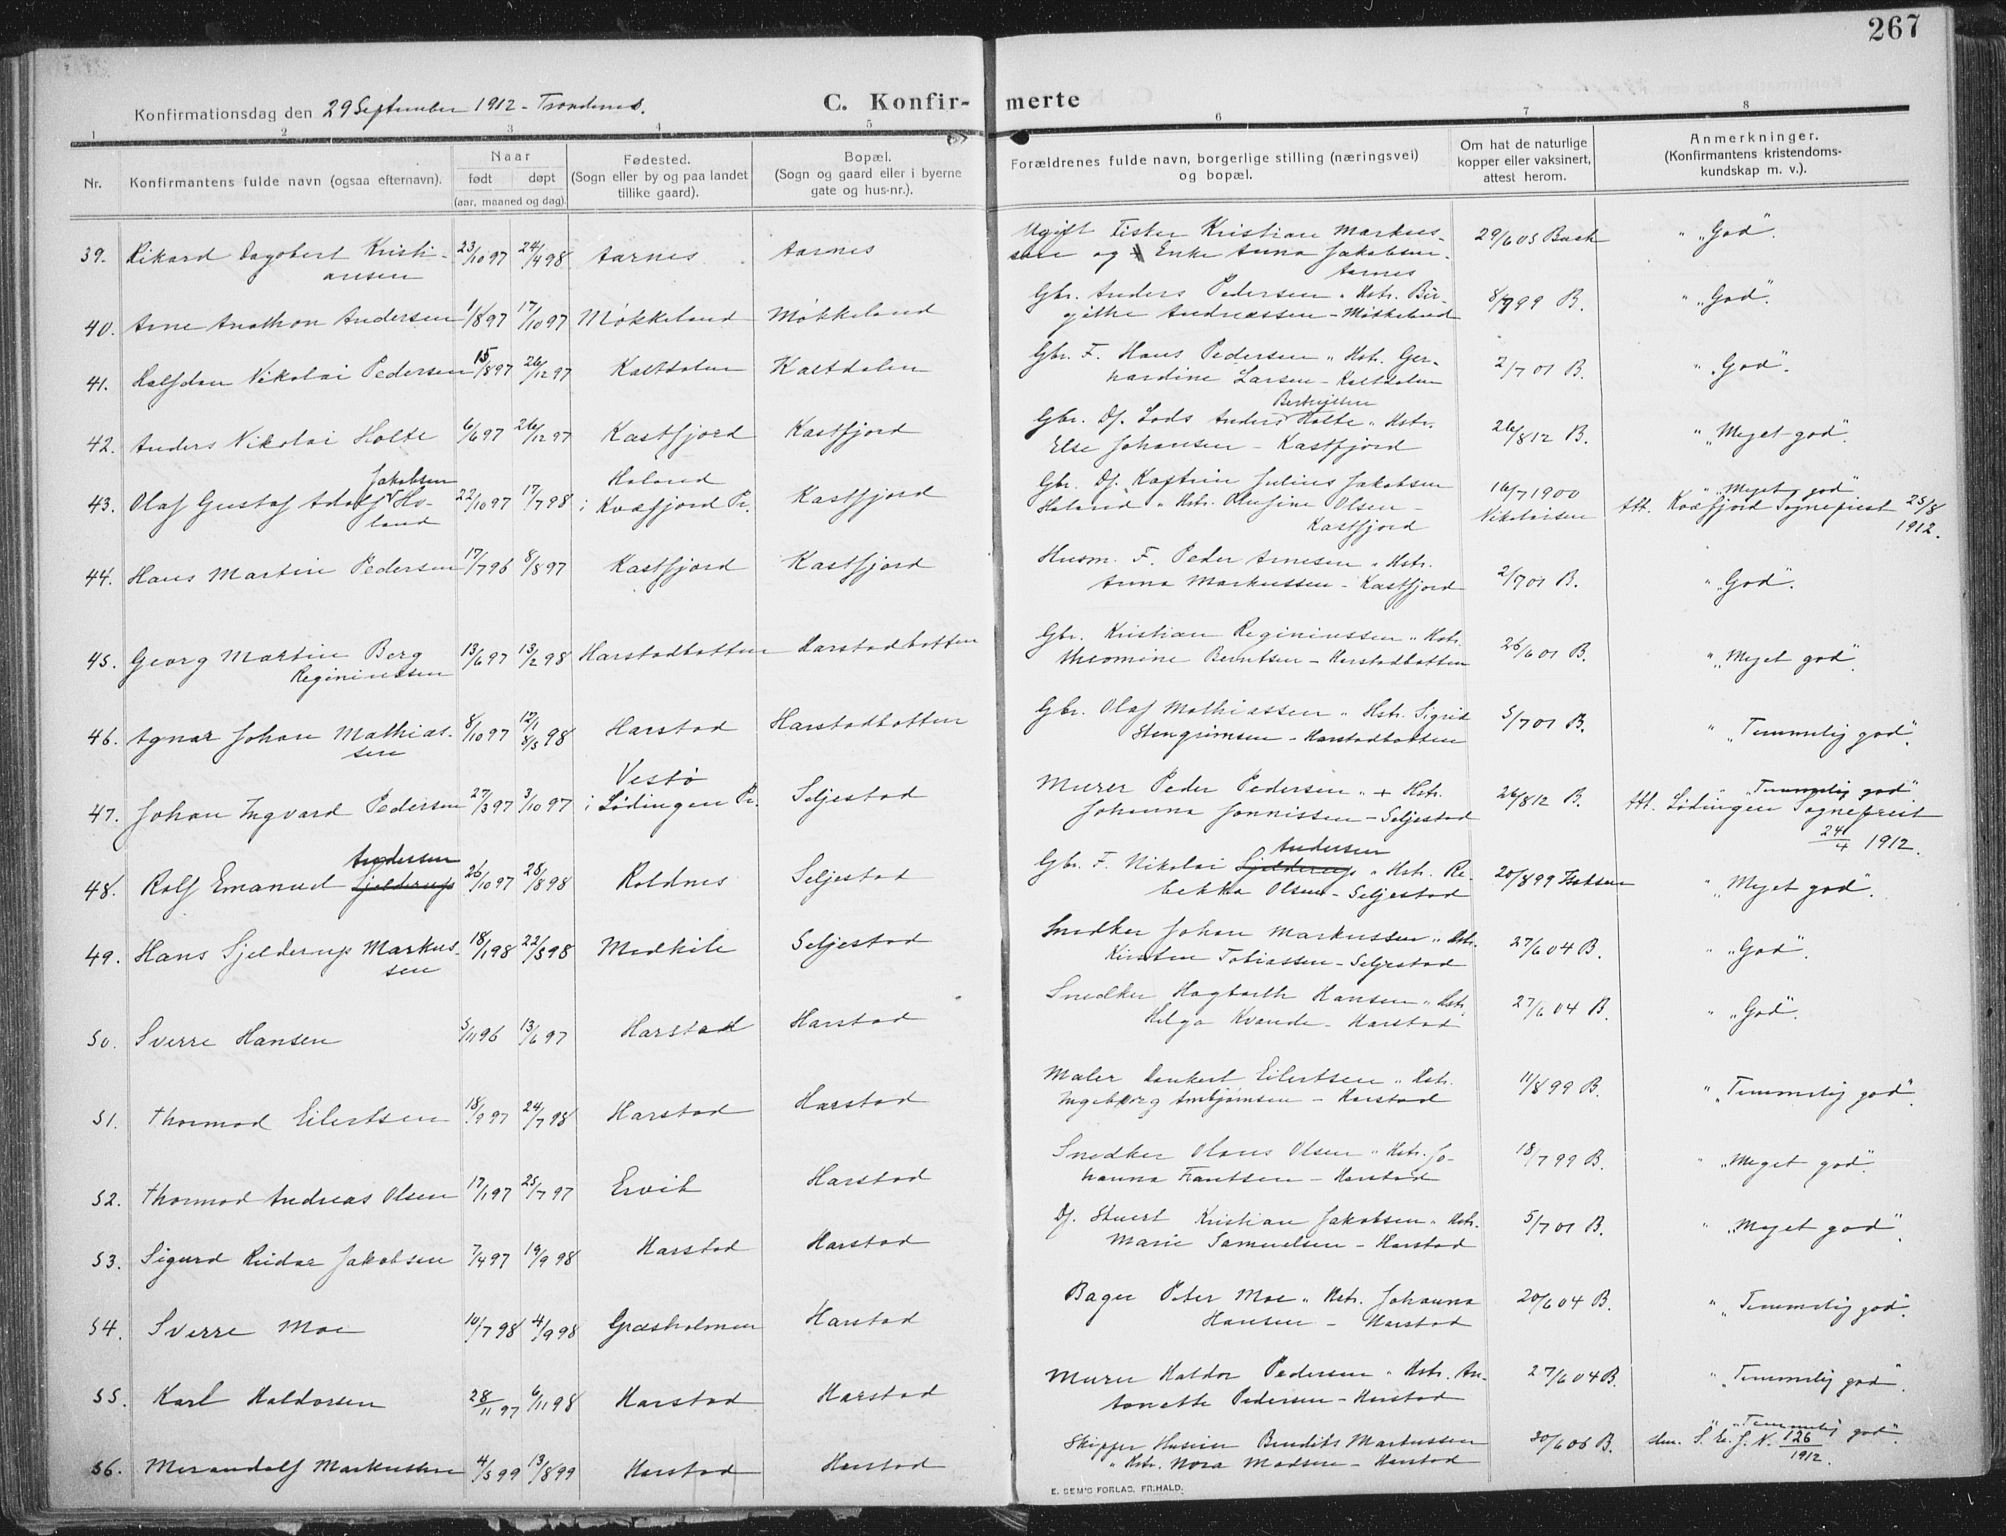 267
Konfirmationsdag den 29 September 1912 - Trondenes.
C. Konfir- merte
1 2 3 4 5 6 7 8
Nr.
Konfirmantens fulde navn (ogsaa efternavn).
Naar
født døpt
(aar, maaned og dag).
Fødested.
(Sogn eller by og paa landet
tillike gaard).
Bopæl.
(Sogn og gaard eller i byerne
gate og hus-nr.).
Forældrenes fulde navn, borgerlige stilling (næringsvei)
og bopæl.
Om hat de naturlige
kopper eller vaksinert,
attest herom.
Anmerkninger.
(Konfirmantens kristendoms-
kundskap m. v.).
39. Rikard Dagobert Kristi- 23/10 97 24/4 98 Aarnes Aarnes Ugift Fisker Kristian Markus- 29/6 05 Back " "God".
ansen sen og Enke Anna Jakobsen -
Aarnes
40. Arne Anathon Andersen 1/8 97 17/10 97 Møkkeland Møkkeland Gbr. Anders Pedersen " Hstr. Bir- 8/7 99 B. " "God".
githe Andreassen - Møkkeland
41. Halfdan Nikolai Pedersen 15/8 97 26/12 97 Kaltdalen Kaltdalen Gbr. F. Hans Pedersen " Hstr. Ger- 2/7 01 B. " "God".
hardine Larsen - Kaltdalen
42. Anders Nikolai Holte 6/6 97 26/12 97 Kastfjord Kastfjord Gbr. Df. Lods Anders Holte " Hstr. 26/8 12 B. " "Meget god".
Else Johansen - Kastfjord
43. Olaf Gustaf Adolf Jakobsen Ho- 22/10 97 17/7 98 Holand Kastfjord Gbr. Df. Julius Jakobsen 16/7 1900 " "Meget god"
land i Kvæfjord Pr. Holand " Hstr. Olufine Olsen - Nikolaisen Att. Kvæfjord Sogneprest 25/8
Kastfjord 1912.
44. Hans Martin Pedersen 17/7 96 8/8 97 Kastfjord Kastfjord Husm. F. Peder Arnesen " Hstr. 2/7 01 B. " "God".
Anna Markussen - Kastfjord
45. Georg Martin Berg 13/6 97 13/2 98 Harstadbotten Harstadbotten Gbr. Kristian Reginiussen " Hstr. 26/6 01 B. " "Meget god".
Reginiussen Thomine Berntsen - Harstadbotten
46. Agnar Johan Mathias- 8/10 97 12/1 8/5 98 Harstad Harstadbotten Gbr. Olaf Mathiassen " Hstr. Sigrid 5/7 01 B. " "Temmelig god".
sen Stengrimsen - Harstadbotten
47. Johan Ingvard Pedersen 27/3 97 3/10 97 Vestø Seljestad Murer Peder Pedersen " + Hstr. 26/8 12 B. " "Temmelig god"
i Lødingen Pr. Johanna Jonnissen - Seljestad Att. Lødingen Sogneprest
24/4 1912.
48. Rolf Emanuel Andersen Sjelderup 26/10 97 28/8 98 Roldnes Seljestad Gbr. F. Nikolai Andersen Sjelderup " Hstr. Re- 20/8 99 " "Meget god".
bekka Olsen - Seljestad
49. Hans Sjelderup Markus- 18/1 98 22/5 98 Medkile Seljestad Snedker Johan Markussen " Hstr. 27/6 04 B. " "God".
sen Kirsten Tobiassen - Seljestad
50. Sverre Hansen 5/11 96 13/6 97 Harstad Harstad Snedker Hagbarth Hansen " Hstr. 27/6 04 B. " "God".
Helga Kvande - Harstad
51. Thormod Eilertsen 18/9 97 24/7 98 Harstad Harstad Maler Dankert Eilertsen " Hstr. 11/8 99 B. " "Temmelig god".
Ingeborg Arnbjørnsen - Harstad
52. Thormod Andreas Olsen 17/1 97 25/7 97 Ervik Harstad Snedker Olaus Olsen " Hstr. Jo- 18/7 99 B. " "Meget god".
hanna Frantsen - Harstad
53. Sigurd Reidar Jakobsen 7/4 97 19/9 98 Harstad Harstad Df. Stuert Kristian Jakobsen " Hstr. 5/7 01 B. " "Meget god".
Marie Samuelsen - Harstad
54. Sverre Moe 10/7 98 4/9 98 Græsholmen Harstad Bager Peter Moe " Hstr. Johanna 20/6 04 B. " "Temmelig god".
Hansen - Harstad
55. Karl Haldorsen 28/11 97 6/11 98 Harstad Harstad Murer Haldor Pedersen " Hstr. An- 27/6 04 B. " "Temmelig god".
tonette Pedersen - Harstad
56. Merandolf Markussen 4/5 99 13/8 99 Harstad Harstad Skipper Bendiks Markussen 30/6 06 B. " "Temmelig god".
" Hstr. Nora Madsen - Harstad J. N. 126/1912.
E. SEM'S FORLAG, FR.HALD.